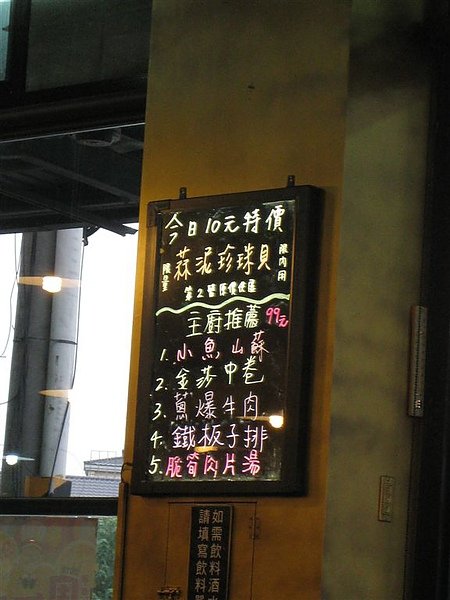 今日10元特價
蒜泥珍珠貝
限量
限內用
第2盤原價供應
主廚推薦 99元
1. 小魚山蘇
2. 金莎中卷
3. 蔥爆牛肉
4. 鐵板子排
5. 脆筍肉片湯
如需飲料酒水
請填寫飲料單